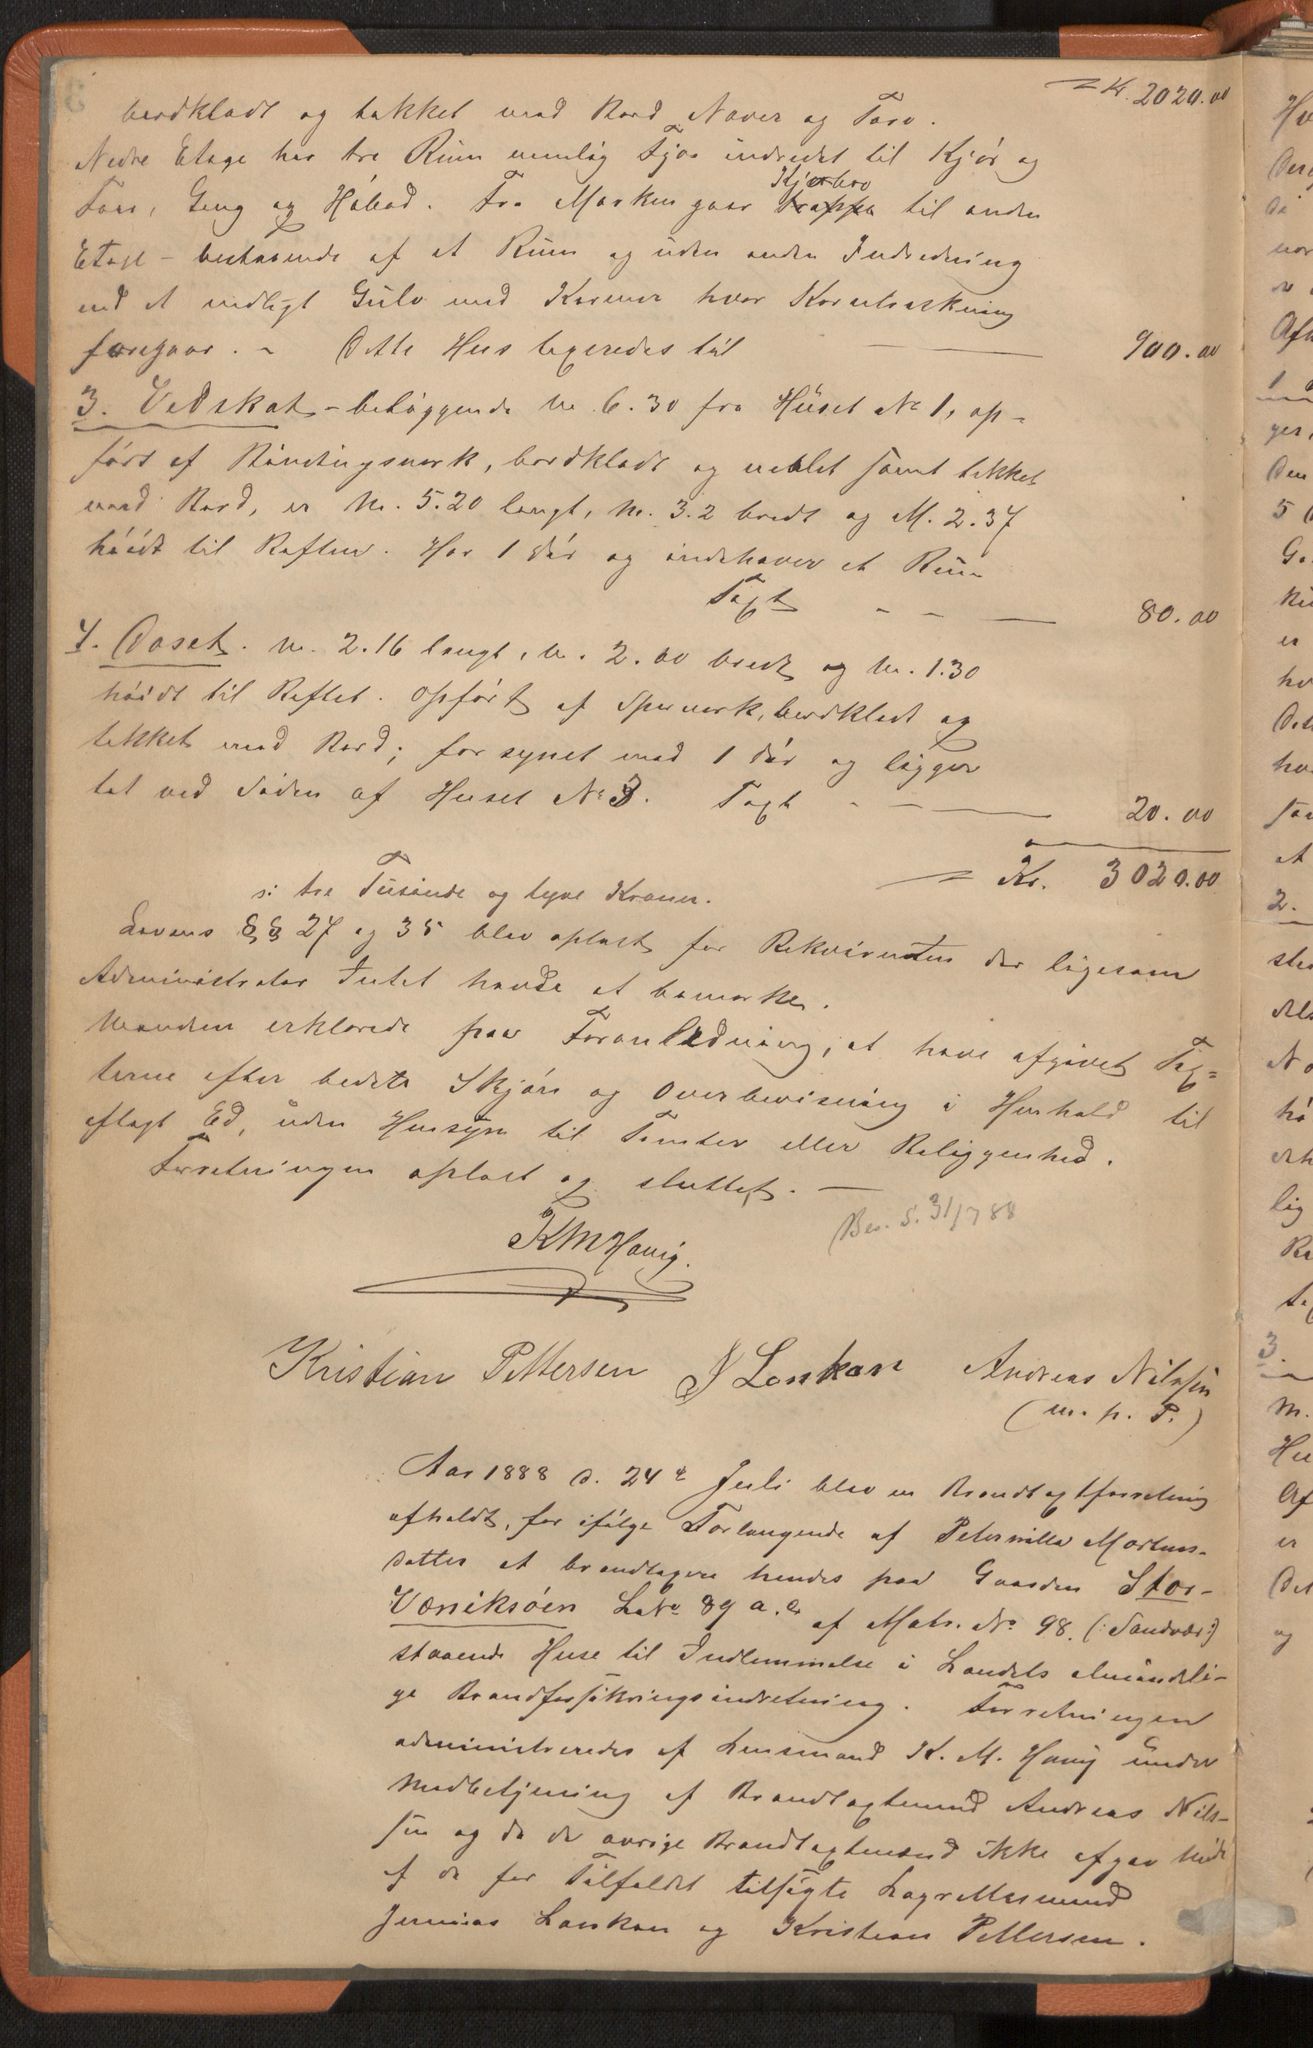 = Kr. 2020.00
bordklædt og tækket med Bord Næver og Torv.
Nedre Etage har tre Rum nemlig Fjøs indredet til Kjør og
Faar, Gang og Høbod. Fra Marken gaar Trappe Kjørbro til anden
Etage – bestaaende af et Rum og uden anden Indredning
end et vedligt Gulv med Karmer hvor Korntærskning
foregaar. – Dette Hus taxeredes til 900.00
3. Vedskot – beliggende M. 6.30 fra Huset No 1, op-
ført af Bindingsverk, bordklædt og malet samt tækket
med Bord, er M. 5.20 langt, M. 3.2 bredt og M. 2.37
høidt til Raften. Har 1 Dør og indehaver et Rum
Taxt – – — 80.00
4. Doset. M. 2.16 langt, M. 2.00 bredt og M. 1.30
høidt til Raftet. Opført af Sperverk, bordklædt og
tækket med Bord; forsynet med 1 Dør og ligger
tæt ved Siden af Huset No 3. Taxt – — 20.00
= Kr. 3020.00
s: tre Tusinde og tyve Kroner.
Lovens §§ 27 og 35 blev oplæst for Rekvirenten der ligesom
Administrator Intet havde at bemærke.
Mændene erklærede paa Foranledning, at have afgivet Tax-
terne efter bedste Skjøn og Overbevisning i Henhold til
aflagt Ed, uden Hensyn til Tomter eller Beliggenhed.
Forretningen oplæst og sluttet. —
Bes. S. 31/7 88
K M Havig.
Kristian Pettersen J Lonkan Andreas Nilssen
(m. p. P.)
Aar 1888 d. 24de Juli blev en Brandtaxtforretning
afholdt, for ifølge Forlangende af Peternilla Mortens-
datter at brandtaxere hendes paa Gaarden Stor-
Væniksøen LNo 89 a. c. af Matr. No 98. (: Sandvær :)
staaende Huse til Indlemmelse i Landets almindeli-
ge Brandforsikringsindretning. Forretningen
administreredes af Lensmand K. M. Havig under
Medbetjening af Brandtaxtmand Andreas Nils-
sen og da de øvrige Brandtaxtmænd ikke afgav Møde
af de for Tilfældet tilsagte Lagrettesmænd
Jeremias Lonkan og Kristian Pettersen.